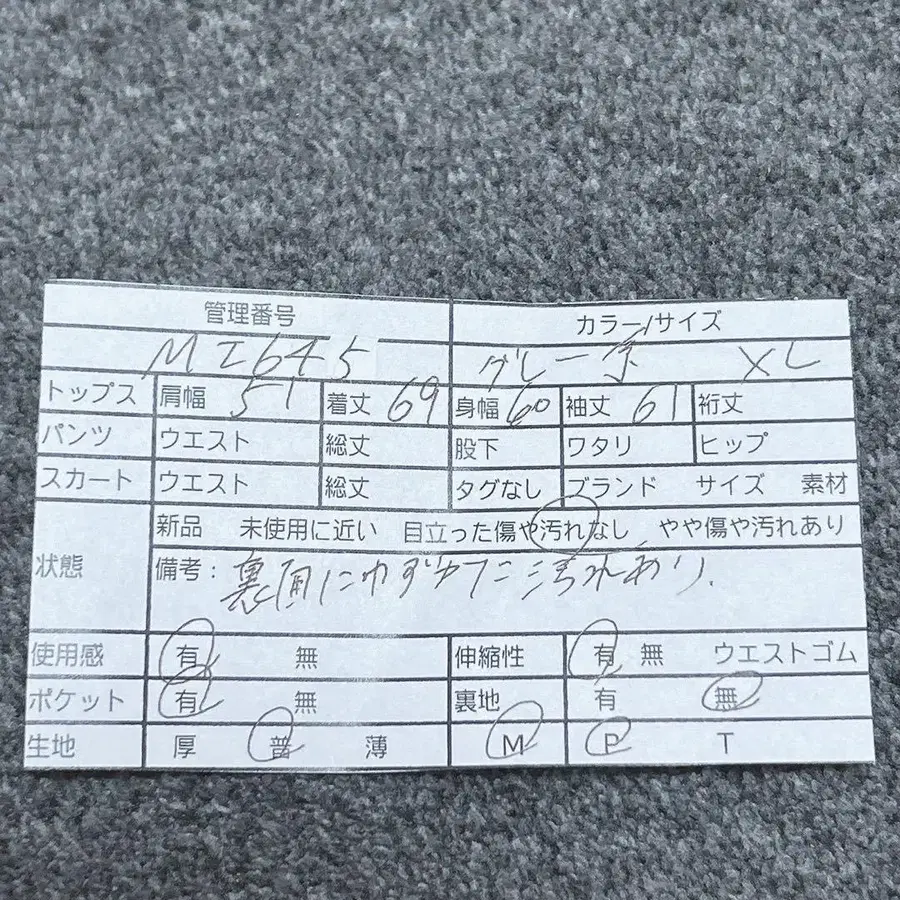 管理番号 カラー/サイズ
MI645 グレー系 XL
トップス 肩幅 51 着丈 69 身幅 60 袖丈 61 裄丈
パンツ ウエスト 総丈 股下 ワタリ ヒップ
スカート ウエスト 総丈 タグなし ブランド サイズ 素材
状態 新品 未使用に近い 目立った傷や汚れなし やや傷や汚れあり
備考: 裏面にわずかに汚れあり.
使用感 有 無 伸縮性 有 無 ウエストゴム
ポケット 有 無 裏地 有 無
生地 厚 普 薄 M P T